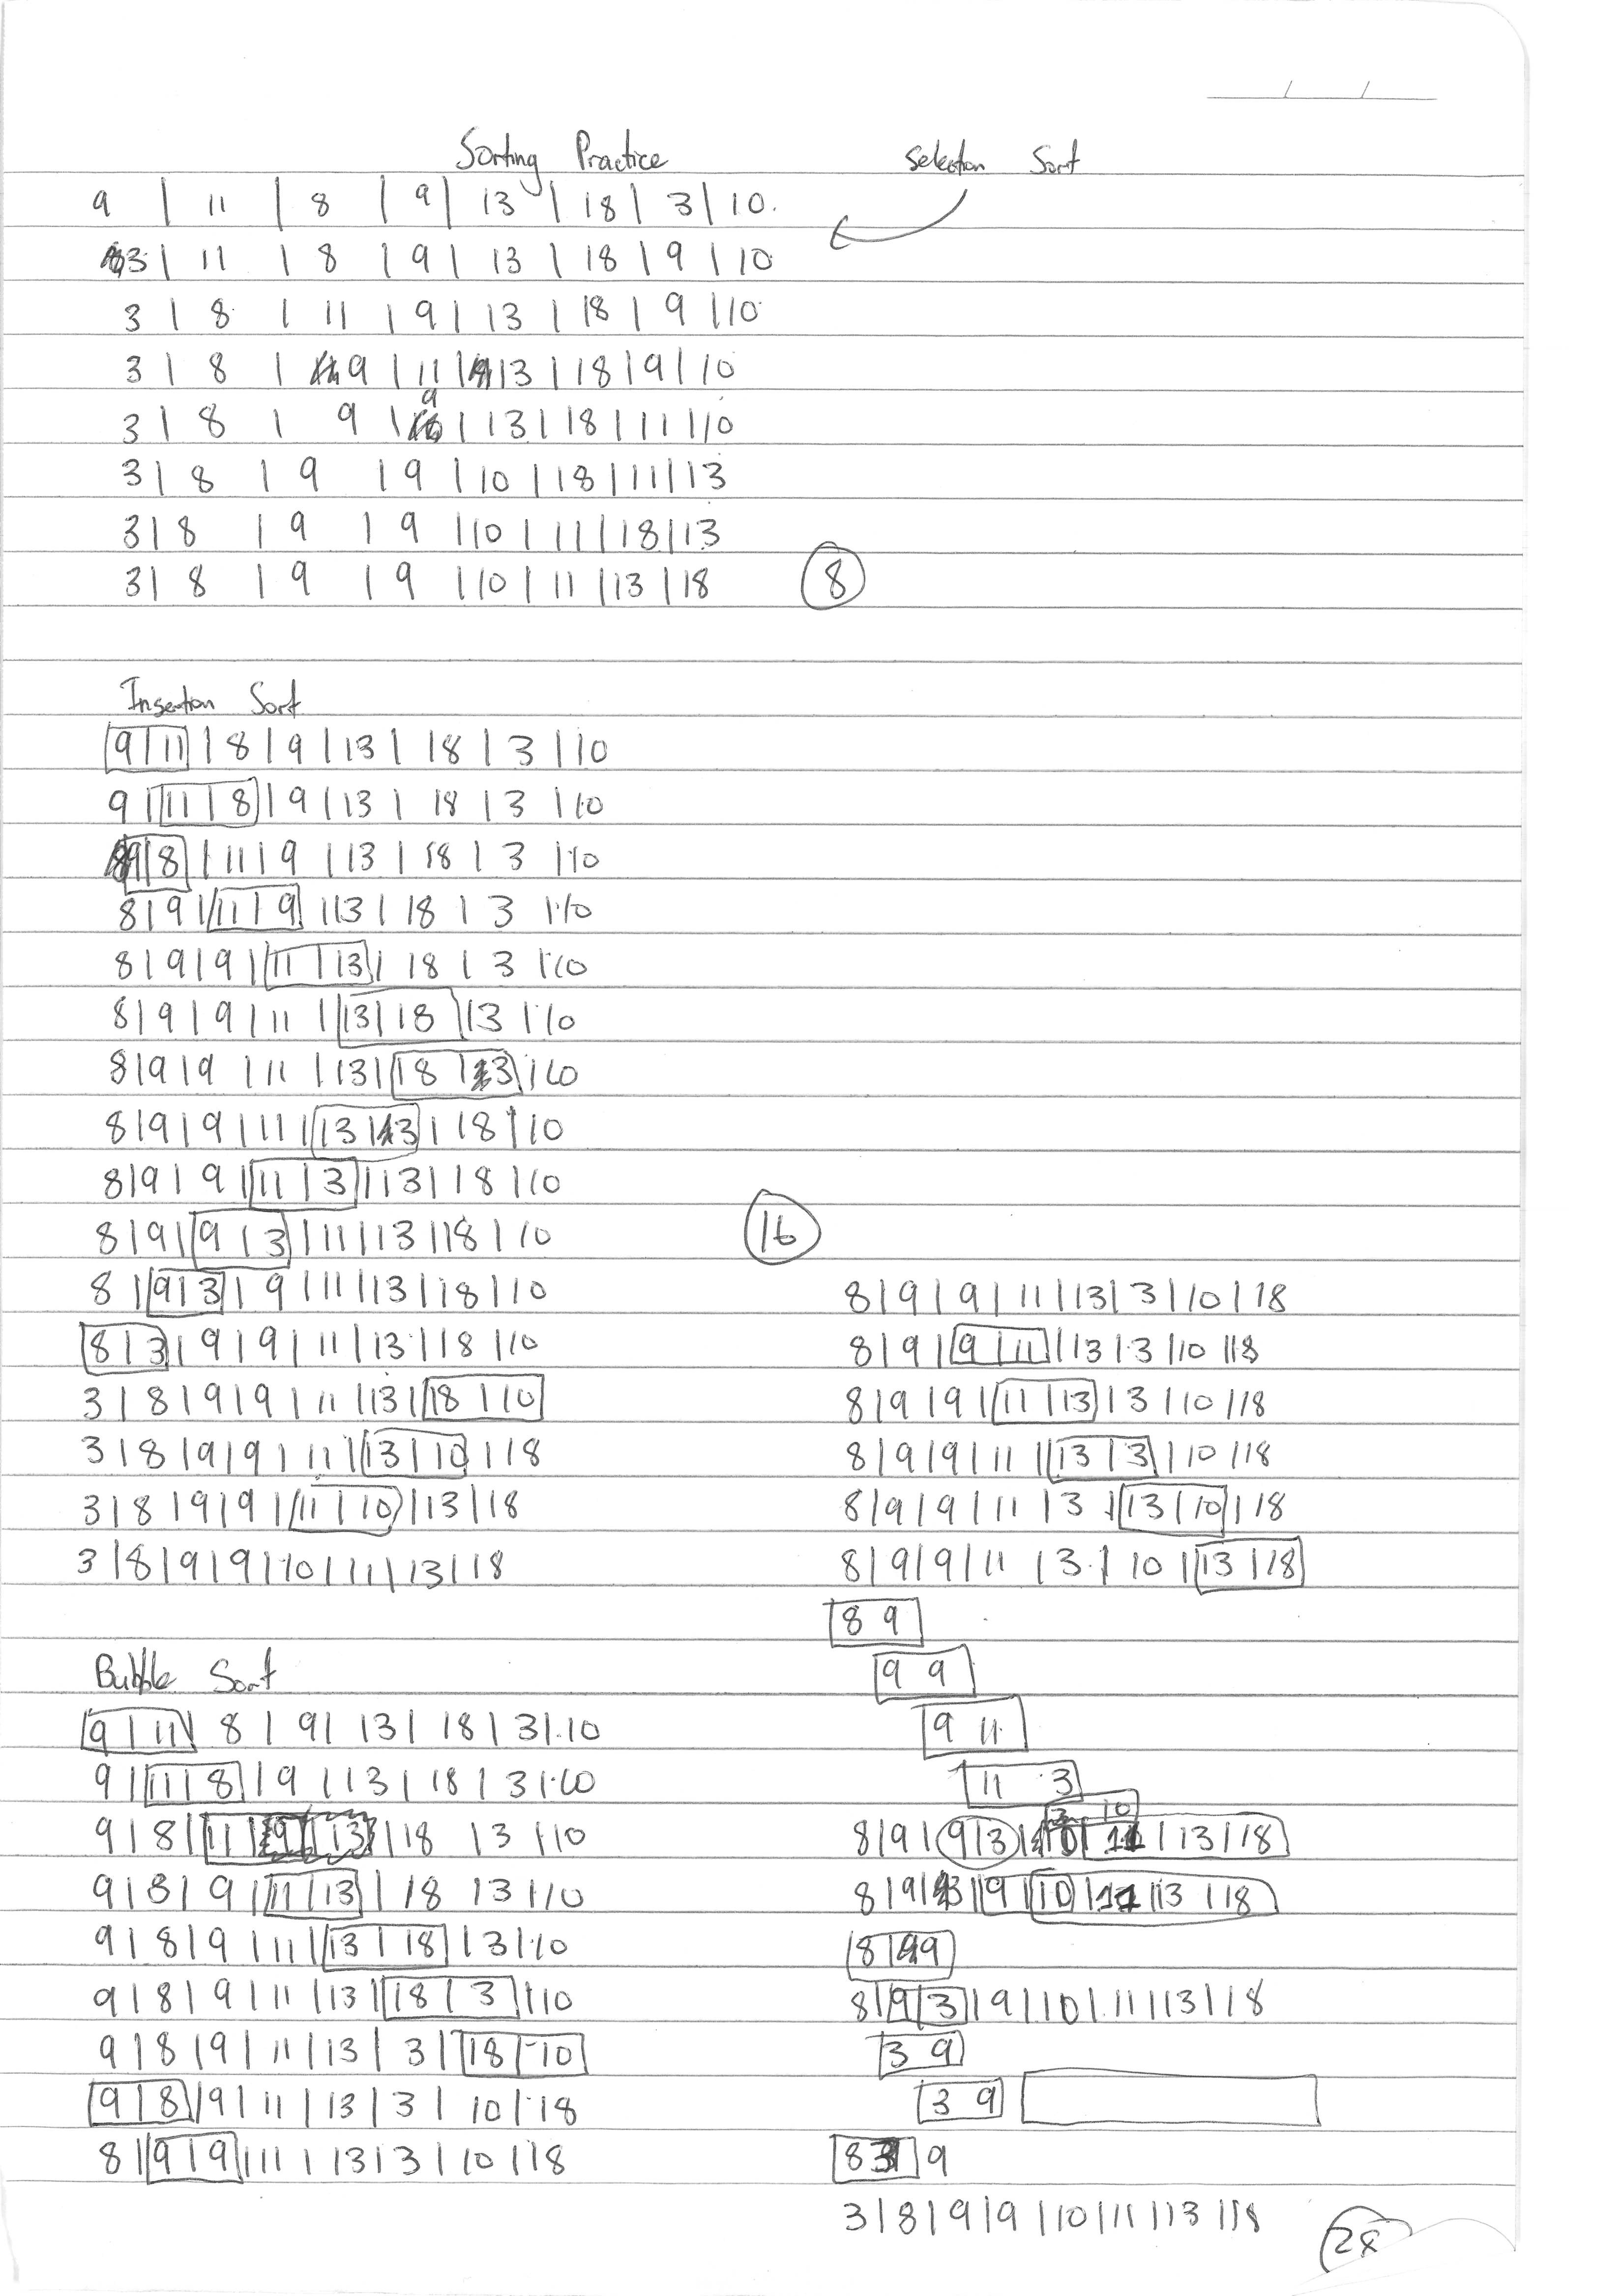 Sorting Practice
Selection Sort
9 | 11 | 8 | 9 | 13 | 18 | 3 | 10
3 | 11 | 8 | 9 | 13 | 18 | 9 | 10
3 | 8 | 11 | 9 | 13 | 18 | 9 | 10
3 | 8 | 9 | 11 | 13 | 18 | 9 | 10
3 | 8 | 9 | 9 | 13 | 18 | 11 | 10
3 | 8 | 9 | 9 | 10 | 18 | 11 | 13
3 | 8 | 9 | 9 | 10 | 11 | 18 | 13
3 | 8 | 9 | 9 | 10 | 11 | 13 | 18
8
Insertion Sort
9 | 11 | 8 | 9 | 13 | 18 | 3 | 10
9 | 11 | 8 | 9 | 13 | 18 | 3 | 10
9 | 8 | 11 | 9 | 13 | 18 | 3 | 10
8 | 9 | 11 | 9 | 13 | 18 | 3 | 10
8 | 9 | 9 | 11 | 13 | 18 | 3 | 10
8 | 9 | 9 | 11 | 13 | 18 | 3 | 10
8 | 9 | 9 | 11 | 13 | 18 | 3 | 10
8 | 9 | 9 | 11 | 13 | 3 | 18 | 10
8 | 9 | 9 | 11 | 3 | 13 | 18 | 10
8 | 9 | 9 | 3 | 11 | 13 | 18 | 10
8 | 9 | 3 | 9 | 11 | 13 | 18 | 10
8 | 3 | 9 | 9 | 11 | 13 | 18 | 10
3 | 8 | 9 | 9 | 11 | 13 | 18 | 10
3 | 8 | 9 | 9 | 11 | 13 | 10 | 18
3 | 8 | 9 | 9 | 11 | 10 | 13 | 18
3 | 8 | 9 | 9 | 10 | 11 | 13 | 18
16
Bubble Sort
9 | 11 | 8 | 9 | 13 | 18 | 3 | 10
9 | 11 | 8 | 9 | 13 | 18 | 3 | 10
9 | 8 | 11 | 9 | 13 | 18 | 3 | 10
9 | 8 | 9 | 11 | 13 | 18 | 3 | 10
9 | 8 | 9 | 11 | 13 | 18 | 3 | 10
9 | 8 | 9 | 11 | 13 | 18 | 3 | 10
9 | 8 | 9 | 11 | 13 | 3 | 18 | 10
9 | 8 | 9 | 11 | 13 | 3 | 10 | 18
8 | 9 | 9 | 11 | 13 | 3 | 10 | 18
8 | 9 | 9 | 11 | 13 | 3 | 10 | 18
8 | 9 | 9 | 11 | 13 | 3 | 10 | 18
8 | 9 | 9 | 11 | 13 | 3 | 10 | 18
8 | 9 | 9 | 11 | 13 | 3 | 10 | 18
8 | 9 | 9 | 11 | 3 | 13 | 10 | 18
8 | 9 | 9 | 11 | 3 | 10 | 13 | 18
8 9
9 9
9 11
11 3
3 10
8 | 9 | 9 | 3 | 10 | 11 | 13 | 18
8 | 9 | 3 | 9 | 10 | 11 | 13 | 18
8 | 9
8 | 9 | 3 | 9 | 10 | 11 | 13 | 18
3 9
3 9
8 3 | 9
3 | 8 | 9 | 9 | 10 | 11 | 13 | 18
28